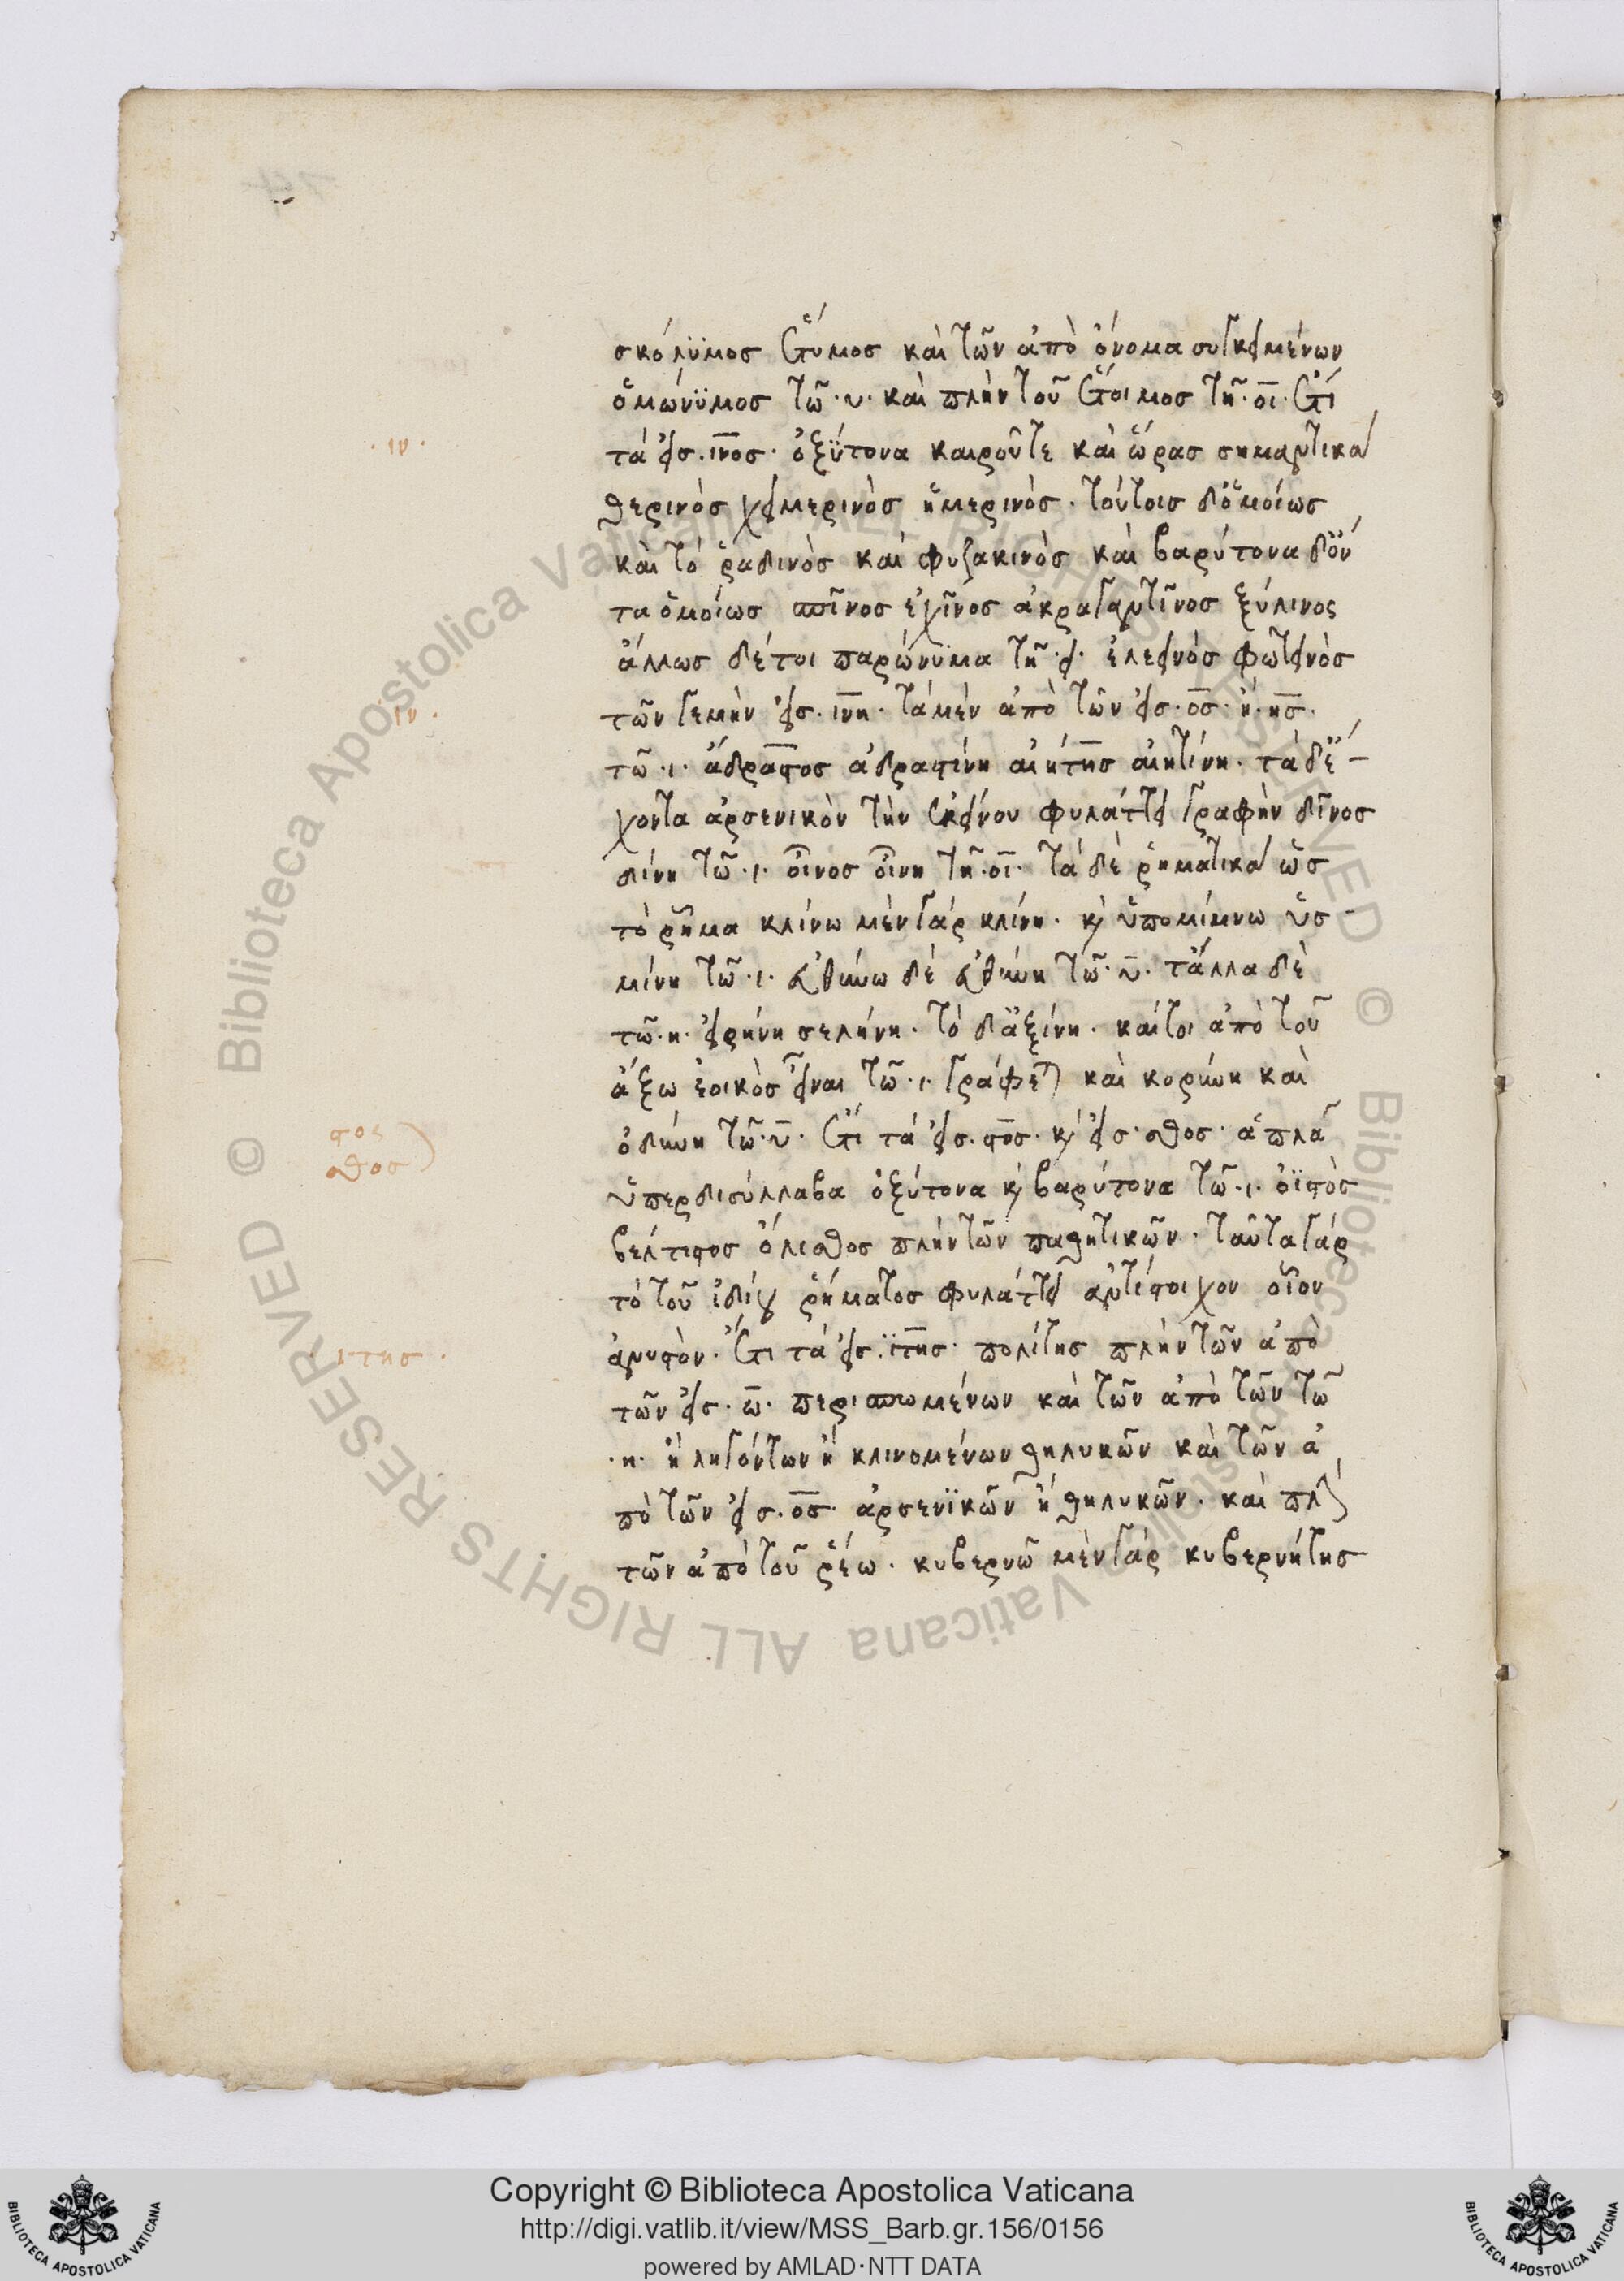 σκόλϋμος ἔτυμος καὶ τῶν ἀπὸ ὄνομα συγκειμένων
ὁμώνϋμος τῶ ·υ· καὶ πλὴν τοῦ ἕτοιμος τῆ ·οι· ἔτι
·ιν·
τά εἰς ·ινος· ὀξϋτονα καιροῦτε καὶ ὥρας σημαντικά
θερινὸς χειμερινὸς ἡμερινὸς · τούτοις δ' ὁμοίως
καὶ τό ῥαδινὸς καὶ φυζακινὸς καὶ βαρύτονα δ' ὄν
τα ὁμοίως πῖνος ἐχῖνος ἀκραγαντῖνος ξύλινος
ἄλλως δέτοι παρώνϋμα τῆ ·ει· ἐλεεινὸς φωτεινὸς
ιν·
τῶν γεμὴν εἰς ·ινη· τά μὲν ἀπὸ τῶν εἰς ·ος· ἢ ·ης·
τῶ ·ι· ἄδραστος ἀδραστίνη αἰήτης αἰητίνη · τὰ δ' ἔ-
χοντα ἀρσενικὸν τὴν ἐκείνου φυλάττει γραφὴν δῖνος
δίνη τῶ ·ι· οἶνος οἴνη τῆ ·οι· τά δὲ ῥηματικά ὡς
τὸ ῥῆμα κλίνω μὲν γάρ κλίνη · κ ὑπομίμνω ὑσ-
μίνη τῶ ·ι· εὐθύνω δὲ εὐθύνη τῶ ·υ· τἄλλα δὲ
τῶ ·η· εἰρήνη σελήνη · τὸ δ' ἀξίνη · καίτοι ἀπὸ τοῦ
ἄξω ἐοικὸς εἶναι τῶ ·ι· γράφεται καὶ κορύνη καὶ
στος
σθος
ὀδύνη τῶ ·υ· ἔτι τά εἰς ·στος· κ εἰς ·σθος· ἁπλᾶ
ὑπερδισύλλαβα ὀξύτονα κ βαρύτονα τῶ ·ι· ὀϊστὸς
βέλτιστος ὄλισθος πλὴν τῶν παθητικῶν · ταῦτα γάρ
τό τοῦ ἰδίου ῥήματος φυλάττει ἀντίστοιχον οἷον
·ιτης·
ἀνυστὸν · ἔτι τά εἰς ·ϊτης· πολίτης πλὴν τῶν ἀπὸ
τῶν εἰς ·ω· περισπωμένων καὶ τῶν ἀπὸ τῶν τῶ
·η· ἢ ληγόντων ἢ κλινομένων θηλυκῶν καὶ τῶν ἀ
πὸ τῶν εἰς ·ος· ἀρσενϊκῶν ἢ θηλυκῶν · καὶ πλὴν
τῶν ἀπὸ τοῦ ῥέω · κυβερνῶ μὲν γάρ κυβερνήτης
Copyright © Biblioteca Apostolica Vaticana
http://digi.vatlib.it/view/MSS_Barb.gr.156/0156
powered by AMLAD·NTT DATA
© Biblioteca Apostolica Vaticana ALL RIGHTS RESERVED
© Biblioteca Apostolica Vaticana ALL RIGHTS RESERVED
BIBLIOTECA APOSTOLICA VATICANA
BIBLIOTECA APOSTOLICA VATICANA